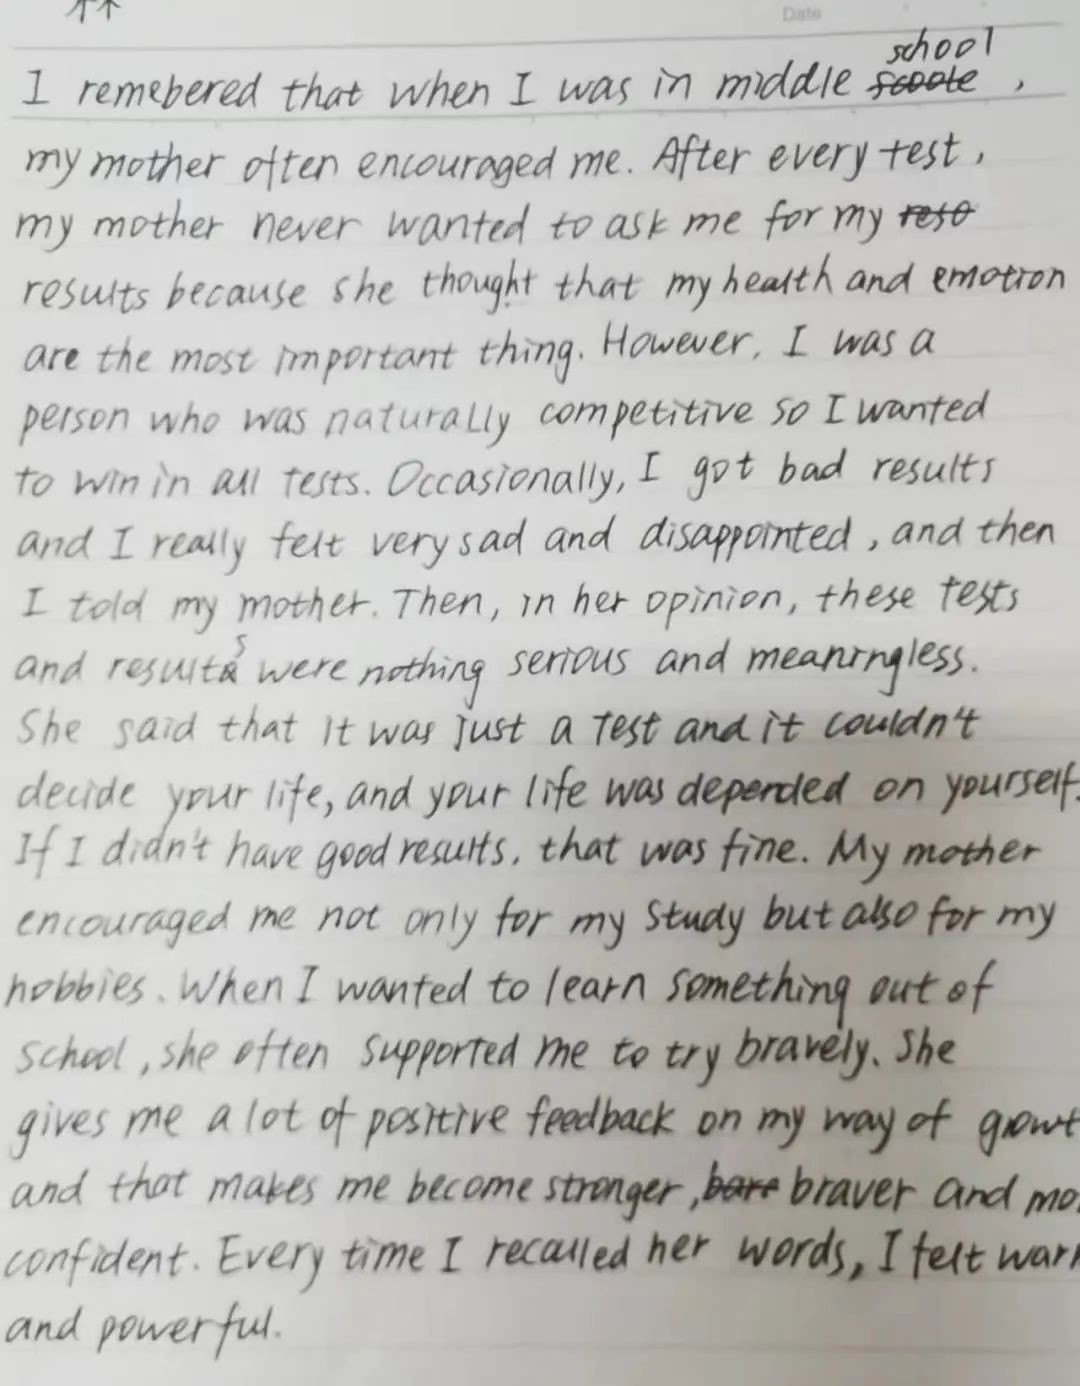 林
Date
I remebered that when I was in middle scoole school,
my mother often encouraged me. After every test,
my mother never wanted to ask me for my reso
results because she thought that my health and emotion
are the most important thing. However, I was a
person who was naturally competitive so I wanted
to win in all tests. Occasionally, I got bad results
and I really felt very sad and disappointed, and then
I told my mother. Then, in her opinion, these tests
and results were nothing serious and meaningless.
She said that it was just a test and it couldn't
decide your life, and your life was depended on yourself.
If I didn't have good results, that was fine. My mother
encouraged me not only for my study but also for my
hobbies. When I wanted to learn something out of
school, she often supported me to try bravely. She
gives me a lot of positive feedback on my way of growt
and that makes me become stronger, bare braver and mo
confident. Every time I recalled her words, I felt warm
and powerful.